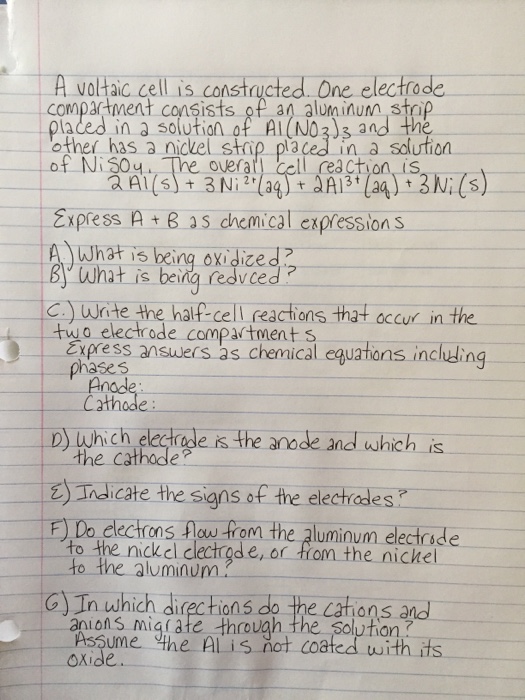 A voltaic cell is constructed. One electrode
compartment consists of an aluminum strip
placed in a solution of Al(NO3)3 and the
other has a nickel strip placed in a solution
of NiSO4. The overall cell reaction is
2 Al(s) + 3 Ni²⁺(aq) + 2Al³⁺(aq) + 3Ni(s)
Express A + B as chemical expressions
A.) What is being oxidized?
B) What is being reduced?
C.) Write the half-cell reactions that occur in the
two electrode compartments
Express answers as chemical equations including
phases
Anode:
Cathode:
D) Which electrode is the anode and which is
the cathode?
E) Indicate the signs of the electrodes?
F) Do electrons flow from the aluminum electrode
to the nickel electrode, or from the nickel
to the aluminum?
G) In which directions do the cations and
anions migrate through the solution?
Assume the Al is not coated with its
oxide.